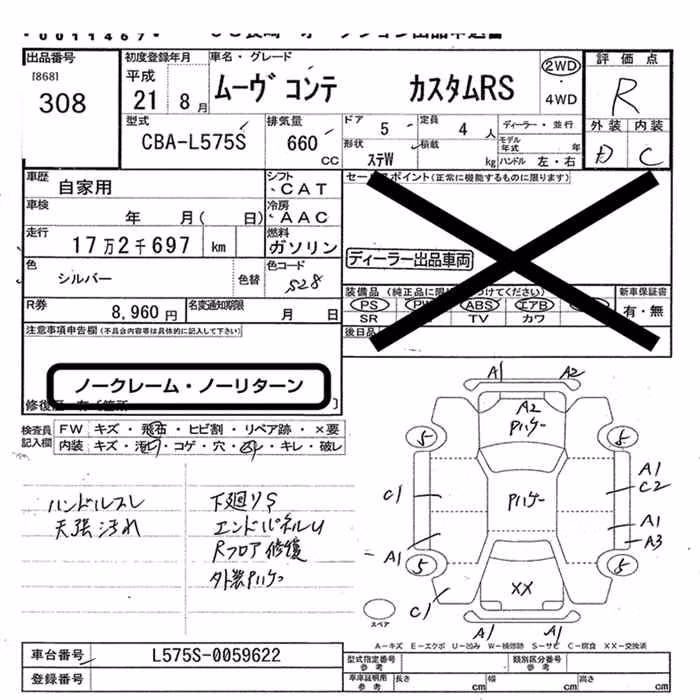 0011467
出品番号
[868]
308
初度登録年月
平成
21 8月
車名・グレード
ムーヴ コンテ カスタムRS
2WD
・
4WD
評価点
R
外装 内装
D C
型式
CBA-L575S
排気量
660 CC
ドア
5
定員
4 人
形状
ステW
積載
kg
ディーラー・並行
モデル年式 年
ハンドル 左・右
車歴
自家用
シフト
CAT
車検
年 月( 日)
冷房
AAC
走行
17万2千697 km
燃料
ガソリン
色
シルバー
色替
色コード
S28
R券
8,960円
名変通知期限
月 日
セールスポイント(正常に機能するものに限ります)
ディーラー出品車両
装備品
PS PW ABS エアB
SR TV カワ
新車保証書
有・無
後日品
注意事項申告欄(不具合内容等は具体的に記入して下さい)
ノークレーム・ノーリターン
検査員記入欄
FW キズ・飛石・ヒビ割・リペア跡・×要
内装 キズ・汚れ・コゲ・穴・スレ・キレ・破レ
ハンドルスレ
天張汚れ
下廻りS
エンドパネルU
Rフロア修復
外装Pハゲ
A1 A2
A2
Pハゲ
5 5
C1
Pハゲ
A1
C2
A1
A1
A3
5 5
XX
C1
A1 A1
スペア
A-キズ E-エクボ U-凹み W-補修跡 S-サビ C-腐食 XX-交換済
車台番号
L575S-0059622
登録番号
型式指定番号
参考
類別区分番号
参考
車庫証明用
参考
長さ cm
幅 cm
高さ cm